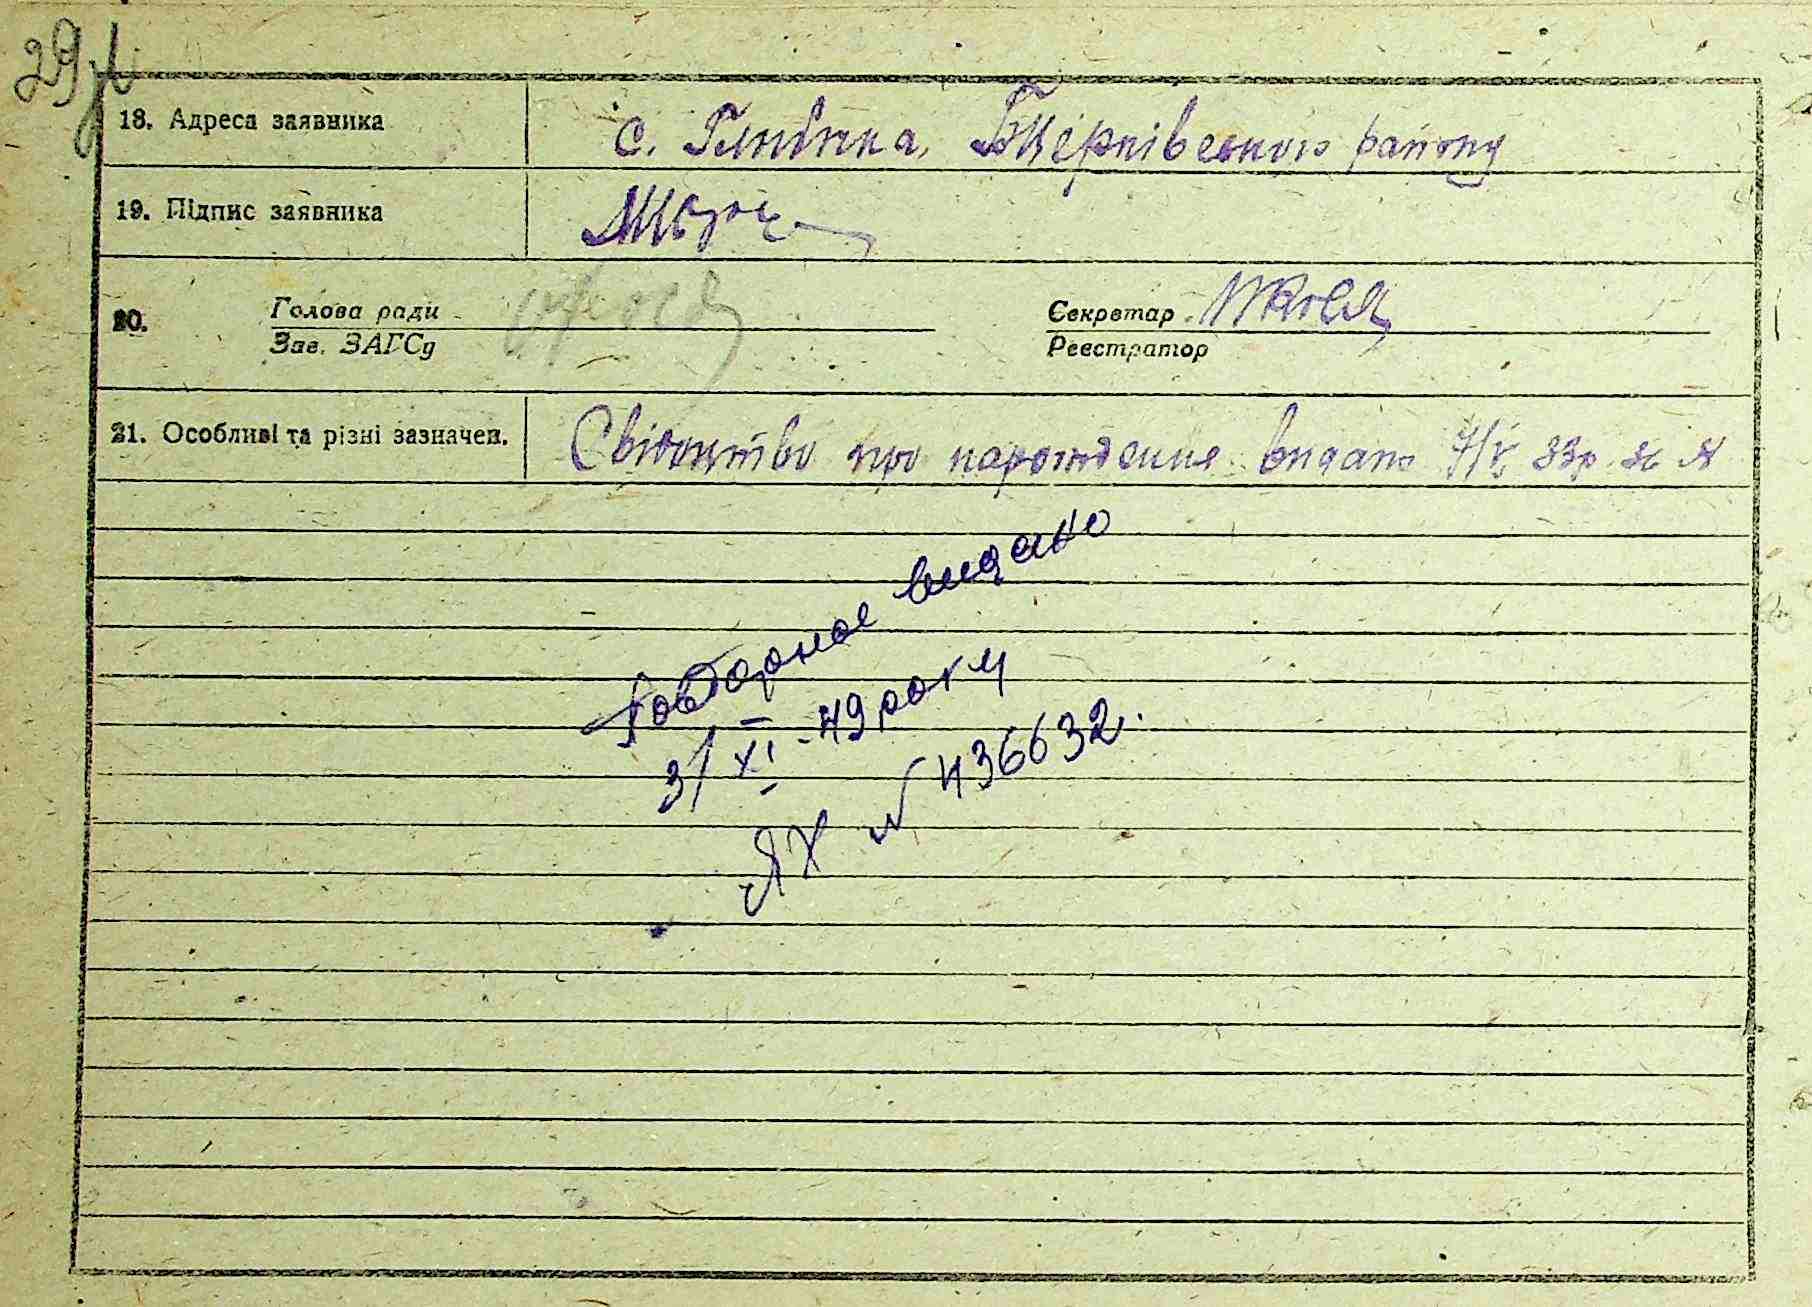 29
18. Адреса заявника с. Глибочка. Бцерківського району
19. Підпис заявника
20. Голова ради Секретар
Зав. ЗАГСу Реєстратор
21. Особливі та різні зазначен. Свідоцтво про нарождення видано 7/V 33р. за №
Повторное видано
3/XI-49 року
ЯХ № 436632.